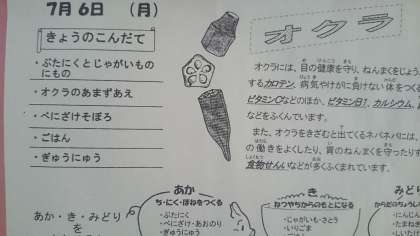 7月6日 （月）
きょうのこんだて
・ぶたにくとじゃがいもの
にもの
・オクラのあまずあえ
・べにざけそぼろ
・ごはん
・ぎゅうにゅう
オクラ
オクラには、目の健康を守り、ねんまくをじょう
するカロテン、病気やかぜに負けない体をつくる
ビタミンCなどのほか、ビタミンB1、カルシウム、
などをふくんでいます。
また、オクラをきざむと出てくるネバネバには、
の働きをよくしたり、胃のねんまくを守ったりす
食物せんいなどが多くふくまれています。
あか
ち・にく・ほねをつくる
・ぶたにく
・べにざけ・あおのり
・ぎゅうにゅう
き
ねつやちからのもとになる
・じゃがいも・さとう
・いりごま
みどり
からだのちょうし
・にんじ
・たまねぎ
あか・き・みどり
を